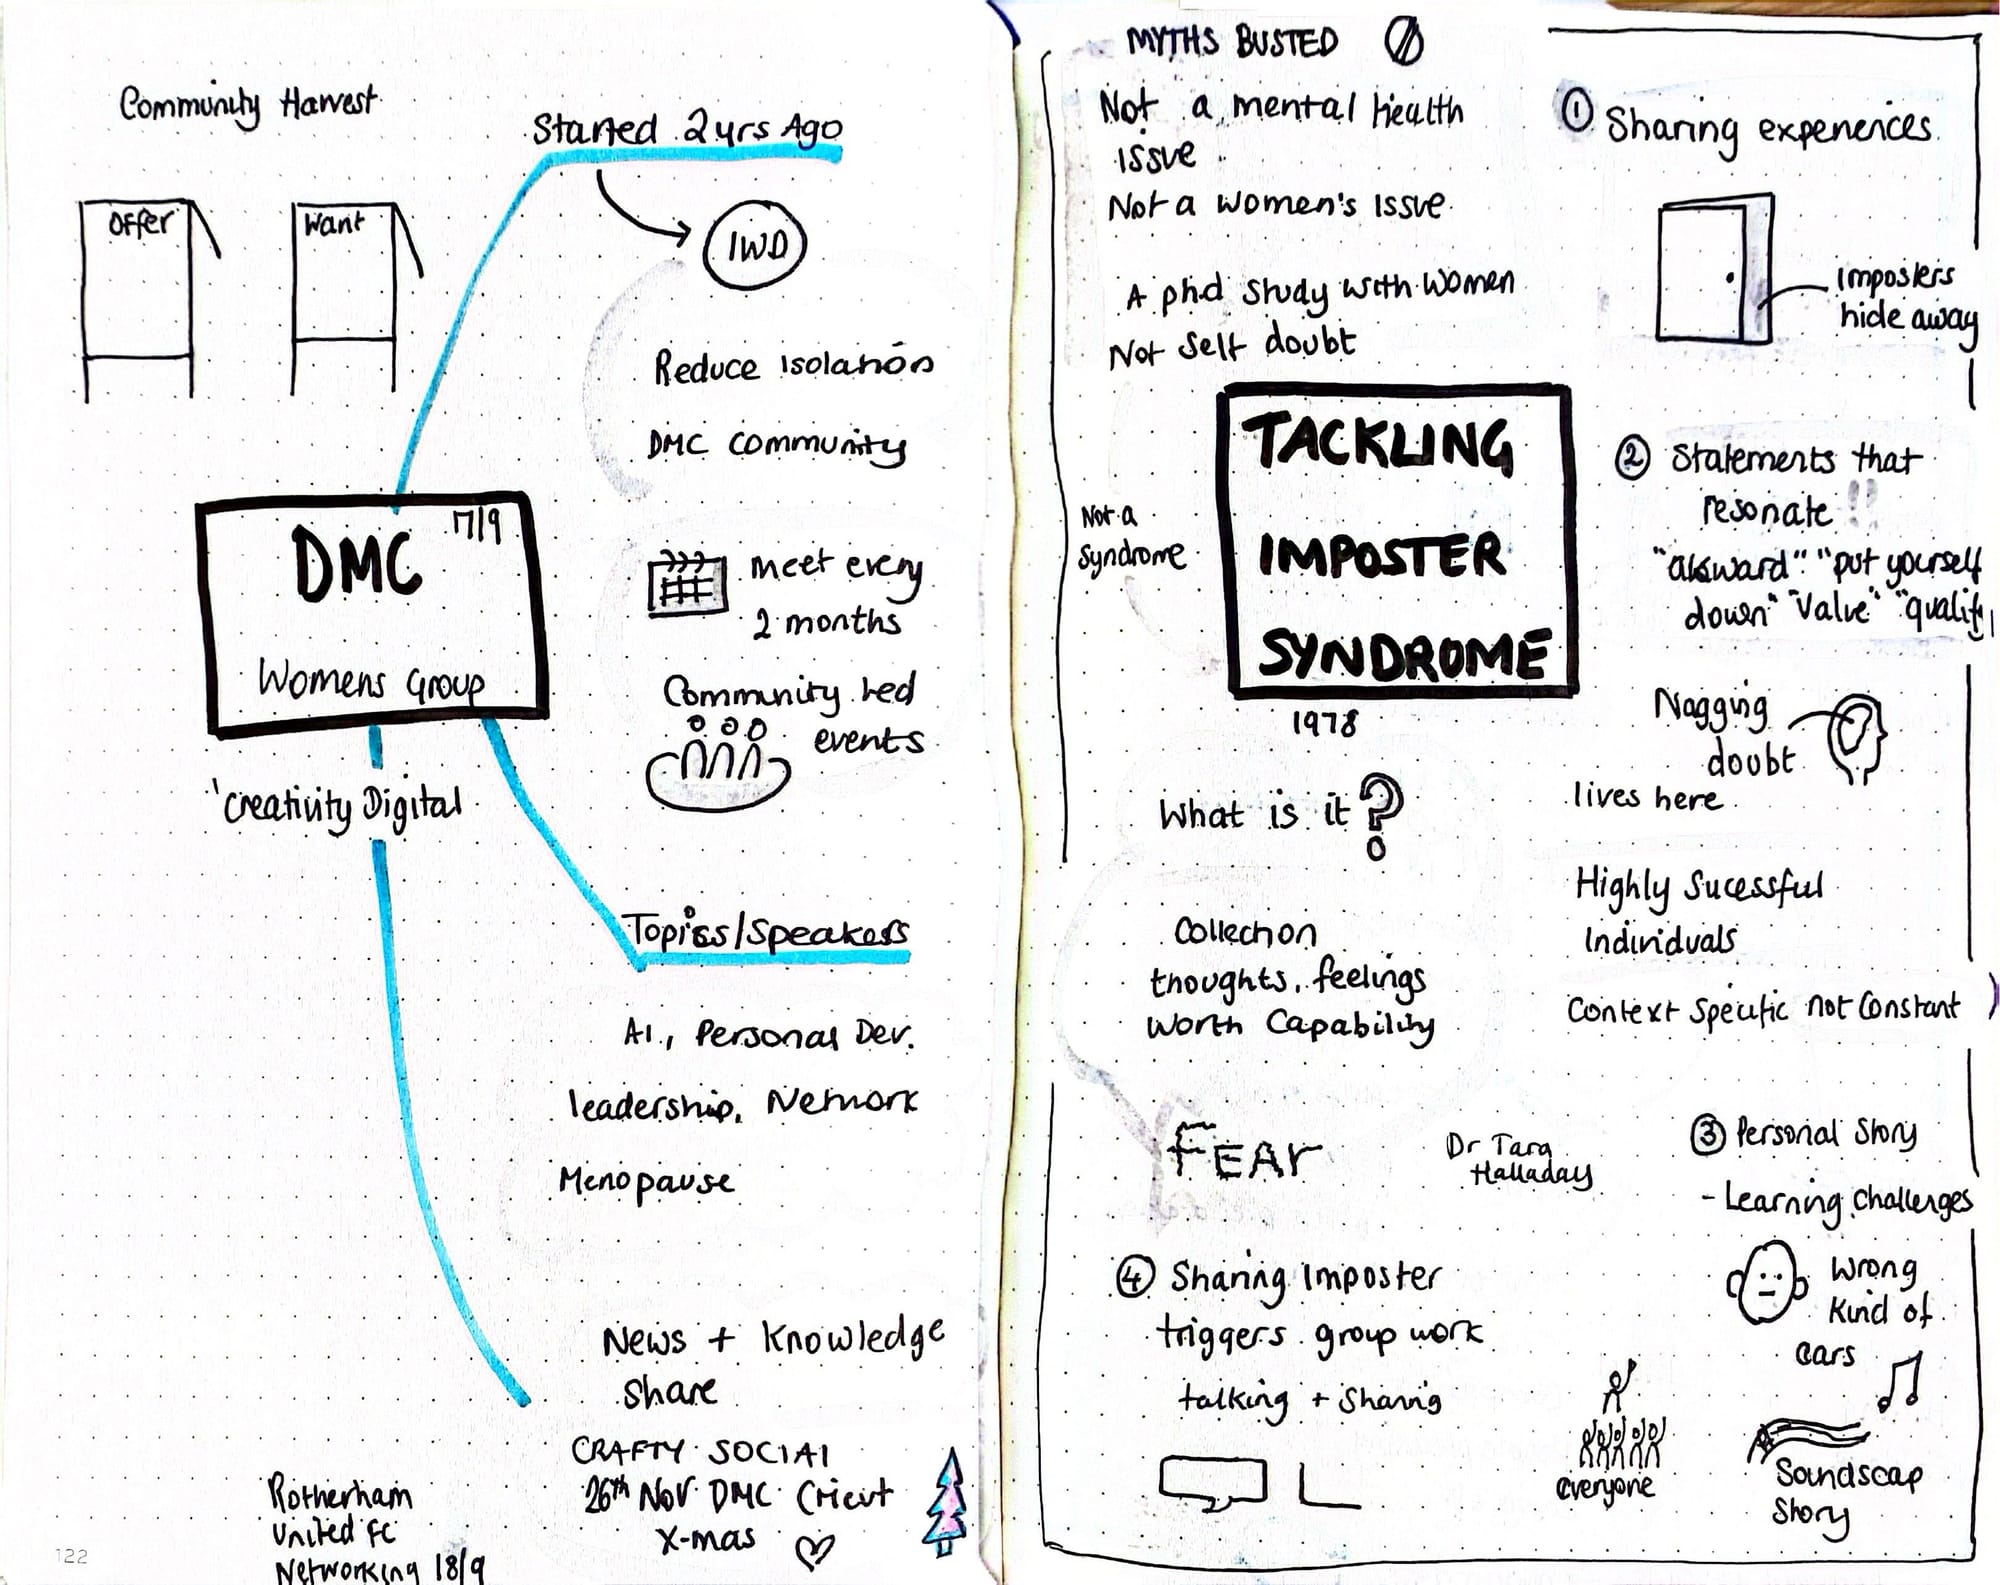 Community Harvest
Offer
Want
Started 2yrs Ago
IWD
Reduce isolation
DMC Community
17/9
DMC
Womens Group
meet every
2 months
Community Led
events
'Creativity Digital
Topics/Speakers
AI., Personal Dev.
leadership, Network
Menopause
News + Knowledge
share
CRAFTY SOCIAL
26th Nov DMC Cricut
X-mas
Rotherham
United FC
Networking 18/9
122
MYTHS BUSTED
Not a mental Health
issue
Not a women's issue
A phd Study with women
Not Self doubt
Not a
Syndrome
TACKLING
IMPOSTER
SYNDROME
1978
What is it?
Collection
thoughts, feelings
worth Capability
FEAR
Dr Tara
Halladay
① Sharing experiences
Imposters
hide away
② Statements that
resonate !!
"akward" "put yourself
down" "Value" "quality
Nagging
doubt
lives here
Highly Sucessful
Individuals
Context Specific not Constant
③ Personal Story
- Learning challenges
Wrong
Kind of
ears
Soundscap
Story
④ Sharing Imposter
triggers group work
talking + Sharing
everyone